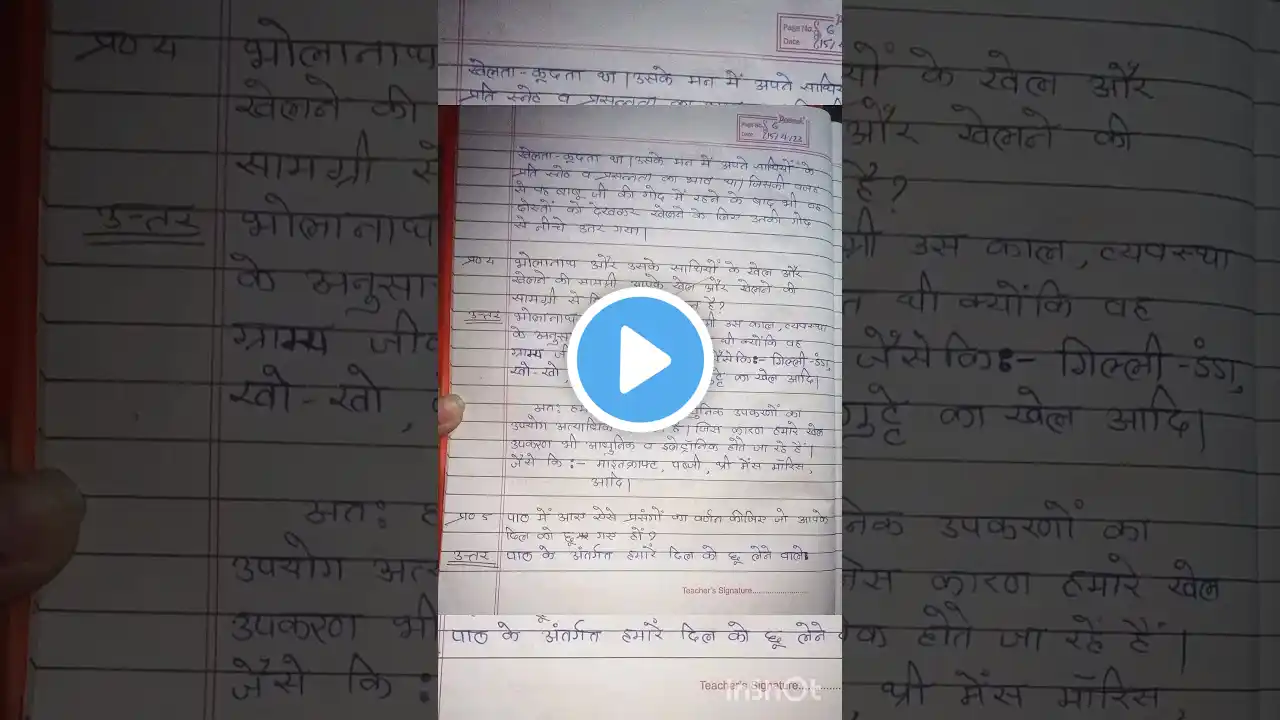 Page No. 6
Date 15/4/23
खेलता-कूदता था। उसके मन में अपते साथियों के
प्रति स्नेह व प्रसन्नता का भाव था। जिसकी वजह
से वह बाबू जी की गोद में रहने के बाद भी वह
दोस्तों को देखकर खेलने के लिए उनकी गोद
से नीचे उतर गया।
प्र०४ भोलानाथ और उसके साथियों के खेल और
खेलने की सामग्री आपके खेल और खेलने की
सामग्री से है?
उत्तर भोलानाथ उस काल, व्यवस्था
के अनुसार थी क्योंकि वह
ग्राम्य जैसेकि:- गिल्ली-डंडा,
खो-खो, गुट्टे का खेल आदि।
अतः उपकरणों का
उपयोग अत्याधिक है। जिस कारण हमारे खेल
उपकरण भी आधुनिक व इलेक्ट्रॉनिक होते जा रहे हैं।
जैसे कि :- माइनक्राफ्ट, पब्जी, थ्री मेंस मॉरिस,
आदि।
प्र०5 पाठ में आए ऐसे प्रसंगों का वर्णन कीजिए जो आपके
दिल को छू गए हों?
उत्तर पाठ के अंतर्गत हमारे दिल को छू लेने वाले
Teacher's Signature
InShOt